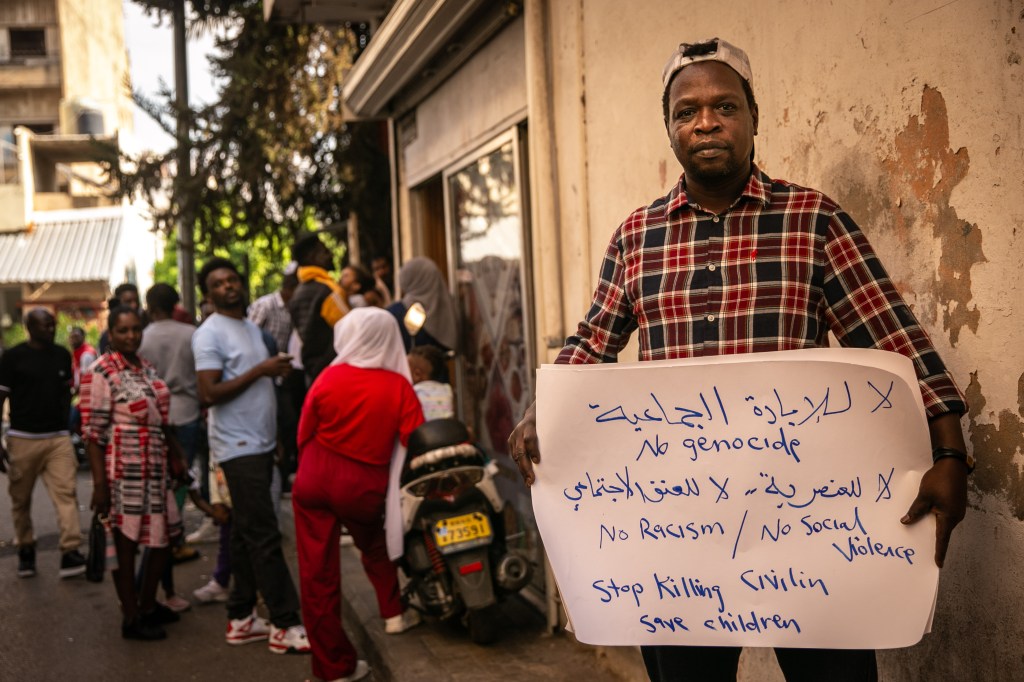 لا للإبادة الجماعية
No genocide
لا للعنصرية .. لا للعنق الاجتماعي
No Racism / No Social
Violence
Stop Killing Civilin
Save children
73591